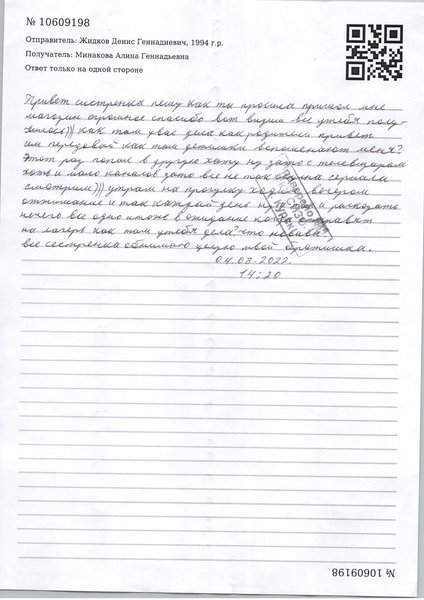 № 10609198
Отправитель: Жидков Денис Геннадиевич, 1994 г.р.
Получатель: Минакова Алина Геннадьевна
Ответ только на одной стороне
Привет сестренка пешу как ты просила пришол мне
магазин огромное спасибо вот видиш все утебя полу-
чилось))) как там увас дела как родители привет
им передовай как там детишки вспоменают меня?
Этот раз попал в другую хату ну зато с телевизаром
хоть и мало каналов зато все не так скучна сериалы
смотрим))) утрам на прогулку ходим вечером
отжимание и так каждой день и расказать
нечего все одно итоже в ожидание когда отправят
на лагерь как там утебя дела? что новава
все сестренка обнимаю целую твой братишка.
04.08.2022.
14:20
№ 10609198